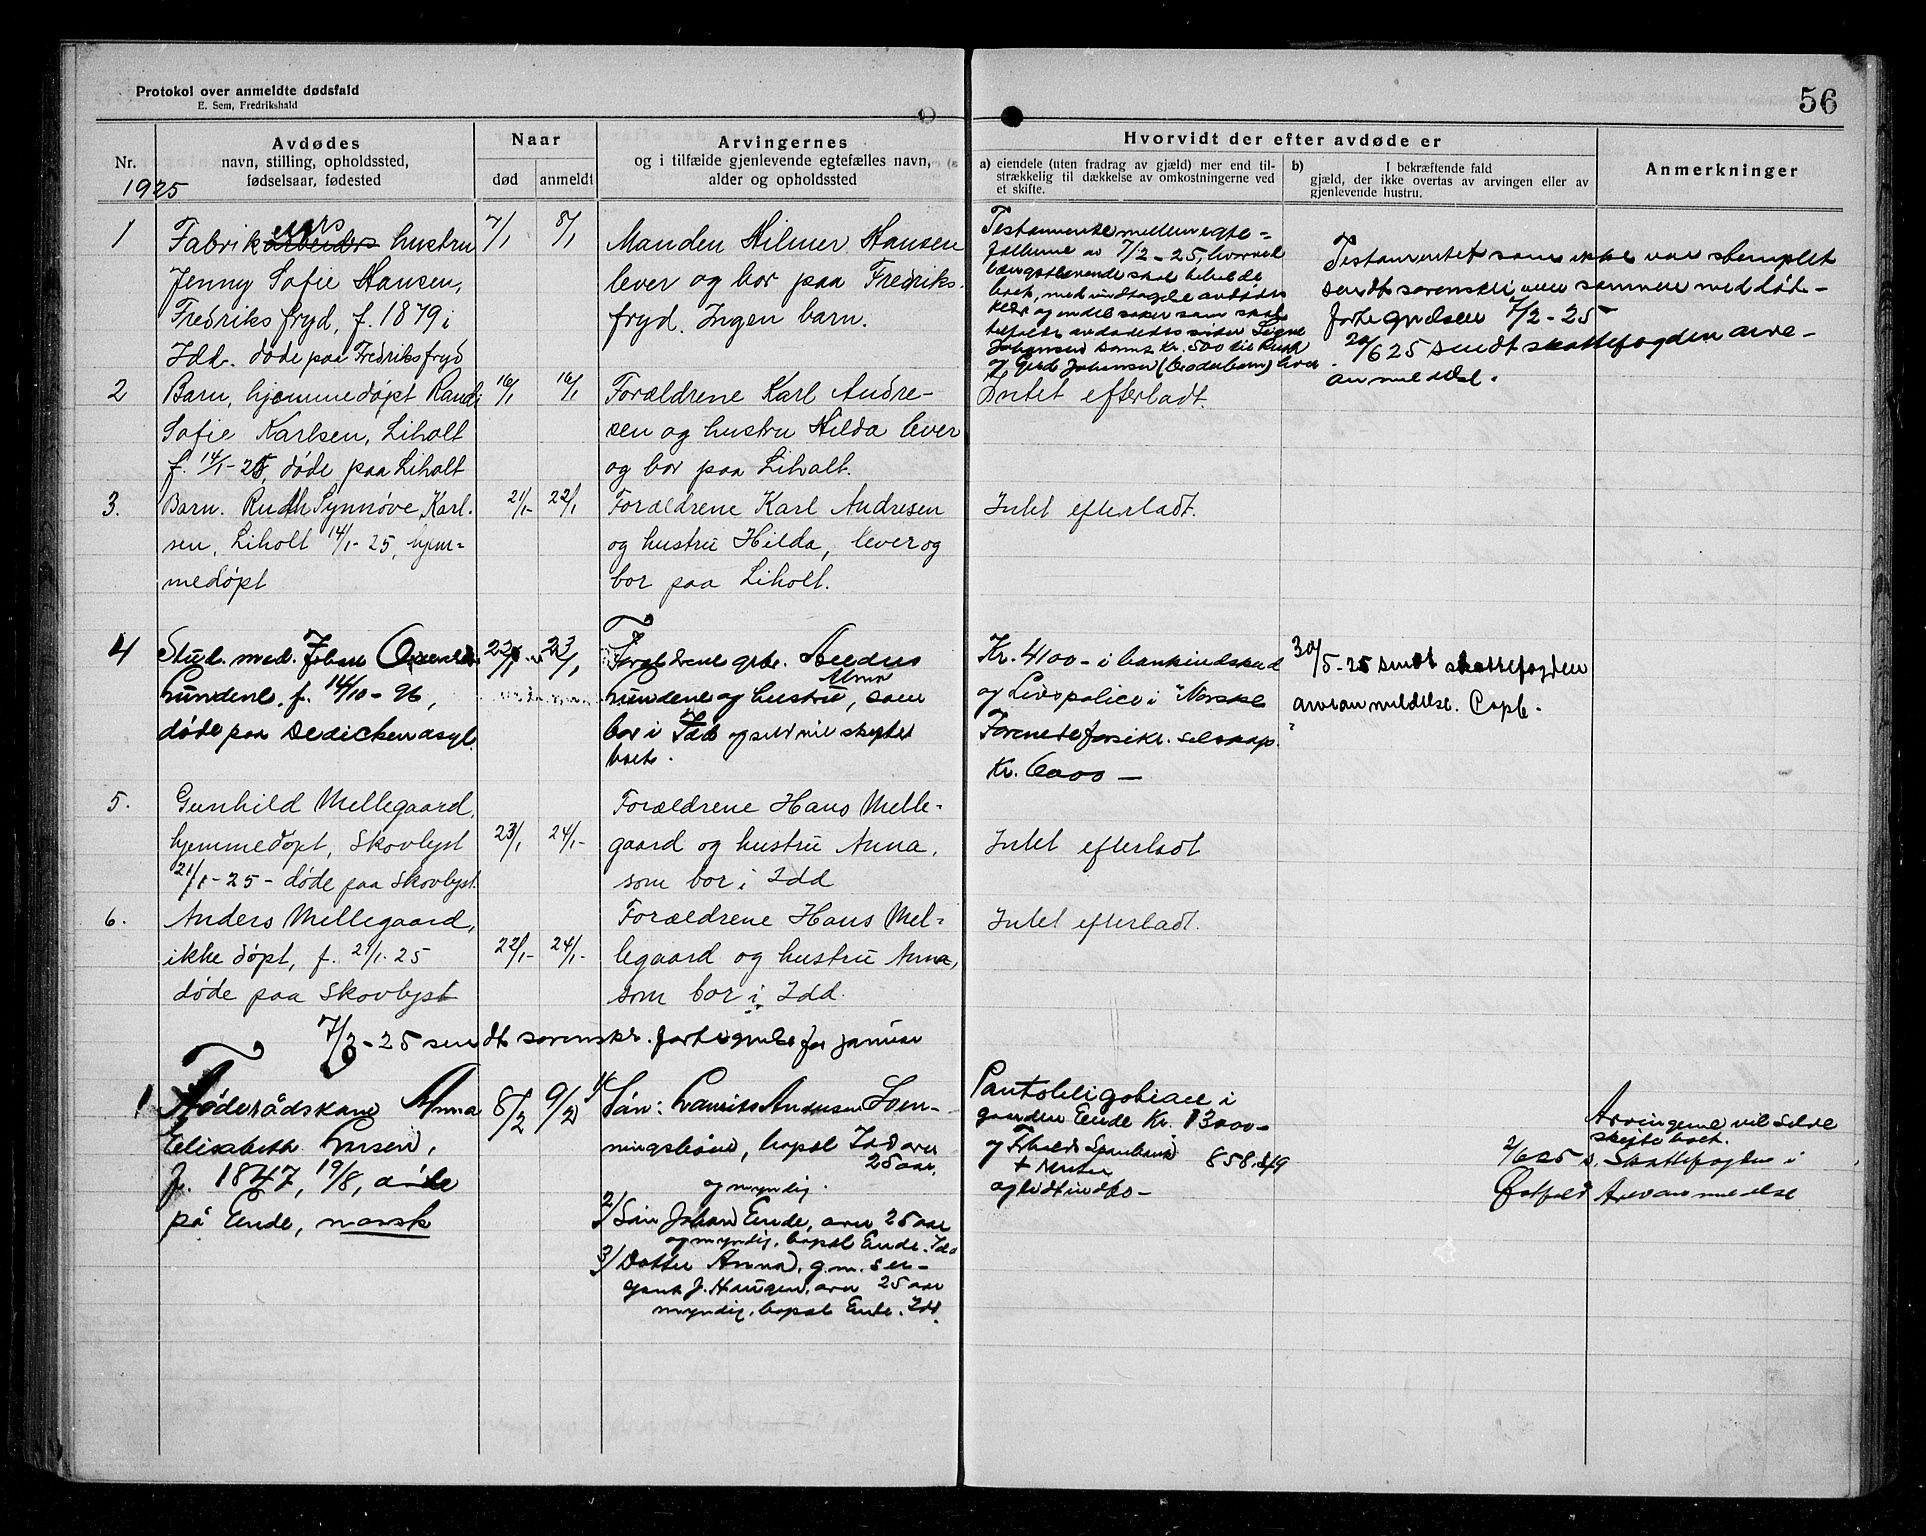 Protokol over anmeldte dødsfald
E. Sem, Fredrikshald
56
Nr.
1925
Avdødes
navn, stilling, opholdssted,
fødselsaar, fødested
Naar
død
anmeldt
Arvingernes
og i tilfælde gjenlevende egtefælles navn,
alder og opholdssted
Hvorvidt der efter avdøde er
a) eiendele (uten fradrag av gjæld) mer end til-
strækkelig til dækkelse av omkostningerne ved
et skifte.
b) I bekræftende fald
gjæld, der ikke overtas av arvingen eller av
gjenlevende hustru.
Anmerkninger
1
eiers
Fabrikarbeiders hustru
Jenny Sofie Hansen,
Fredriksfryd, f. 1879 i
Idd. døde paa Fredriksfryd
7/1
8/1
Manden Hilmer Hansen
lever og bor paa Fredriks-
fryd. Ingen barn.
Testamente mellem egte-
fællerne av 7/2-25, hvorved
længstlevende skal beholde
boet, med undtagelse avdødes
klær og endel saker som skal
avdødes søster Signe
Johansen samt kr. 500 til Ruth
og Gerd Johansen
Testamentet som ikke var stemplet
sendt sorenskriveren sammen med døds-
fortegnelsen 7/2-25
20/6 25 sendt skattefogden arve-
anmeldelse.
2
Barn, hjemmedøpt Randi
Sofie Karlsen, Liholt
f. 14/1-25, døde paa Liholt
16/1
16/1
Forældrene Karl Andre-
sen og hustru Hilda lever
og bor paa Liholt.
Intet efterladt.
3.
Barn. Ruth Synnøve Karl-
sen, Liholt 14/1-25, hjem-
medøpt
21/1-
22/1
Forældrene Karl Andresen
og hustru Hilda, lever og
bor paa Liholt.
Intet efterladt.
4
Stud. med. Johan
Lundene, f. 14/10-96,
døde paa Dedichen asyl.
22/1
23/1
Forældrene gbr. Anders
Alma
Lundene og hustru, som
bor i Idd og selv vil skifte
boet.
Kr. 4100- i bankindskud
og Livspolice i "Norske
Forenede forsikr. selskap.
Kr. 6000 —
30/5-25 sendt skattefogden
arveanmeldelse.
5.
Gunhild Mellegaard,
hjemmedøpt, Skovlyst
21/1-25- døde paa Skovlyst.
23/1
24/1-
Forældrene Hans Melle-
gaard og hustru Anna,
som bor i Idd
Intet efterladt
6.
Anders Mellegaard,
ikke døpt, f. 21/1-25
døde paa Skovlyst
22/1-
24/1-
Forældrene Hans Mel-
legaard og hustru Anna,
som bor i Idd.
Intet efterladt.
7/2-25 sendt sorenskr. fortegnelse for januar
1
Føderådskone Anna
Elisabeth Larsen,
f. 1847, 19/8, døde
på Ende, norsk
8/2
9/2
1/ Søn: Laurits Andersen Sven-
ningsbøen, bopæl Idd over
25 aar.
og myndig.
2/ Søn Johan Ende, over 25 aar
og myndig, bopæl Ende. Idd
3/ Datter Anna, g. m. ser-
gent J. Haugen, over 25 aar
myndig, bopæl Ende. Idd.
Pantobligation i
gaarden Ende Kr. 13000-
og Fr.halds Sparebank 858.49
+ renter
og lidt indbo-
Arvingerne vil selv
skifte boet.
2/6 25 s. Skattefogden i
Østfold Arveanmeldelse